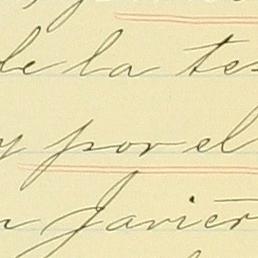 de la tes
y por el
n Javier